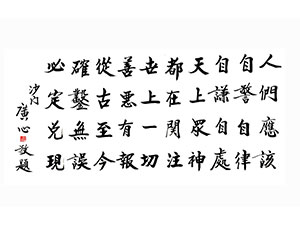 人們應該
自警自律
自謙自處
天上眾神
都在関注
世上一切
善惡有報
從古至今
確鑿無誤
必定兑現
沙门
廣心
敬題